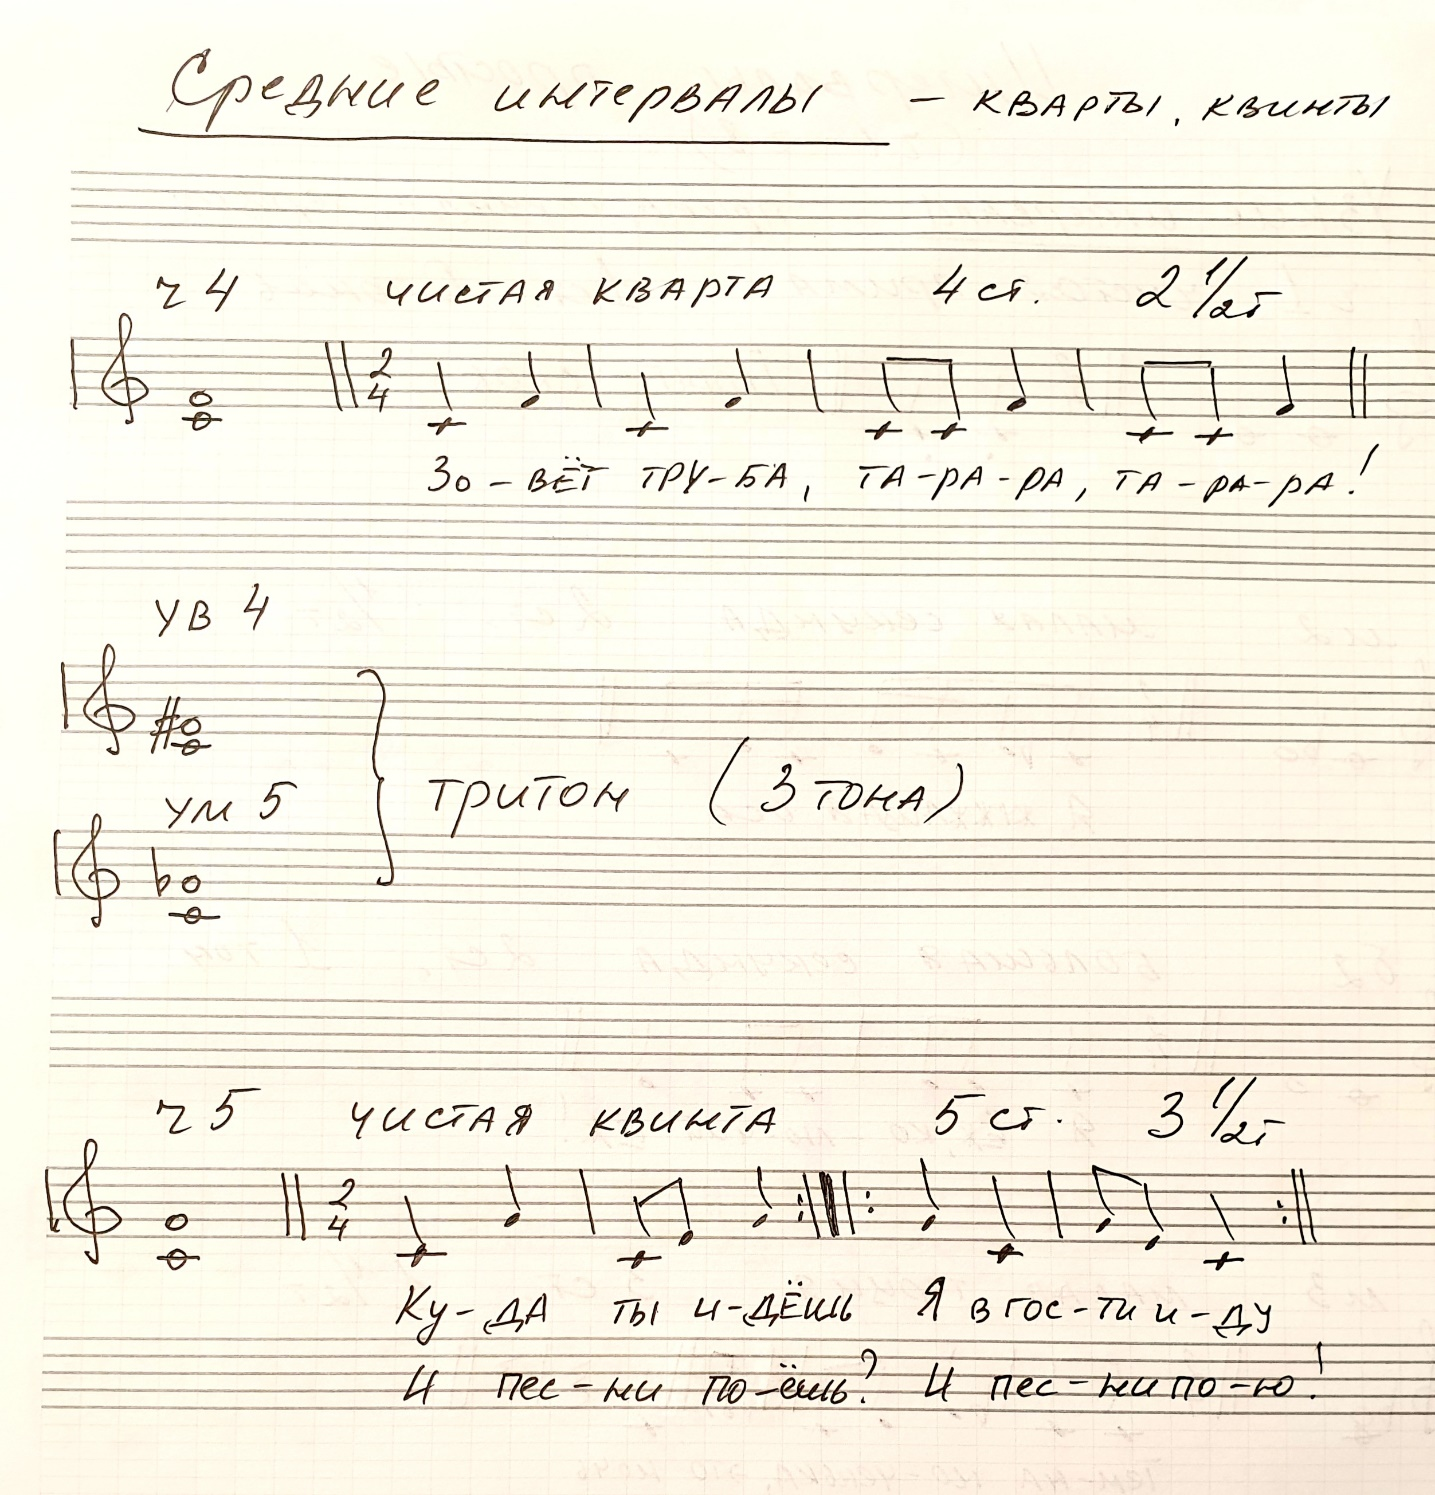 Средние интервалы - кварты, квинты
ч 4 чистая кварта 4 ст. 2 1/2т
2
4
Зо-вёт тру-ба, та-ра-ра, та-ра-ра!
ув 4
ум 5
тритон (3 тона)
ч 5 чистая квинта 5 ст. 3 1/2т
2
4
Ку-да ты и-дёшь Я в гос-ти и-ду
И пес-ни по-ёшь? И пес-ни по-ю!